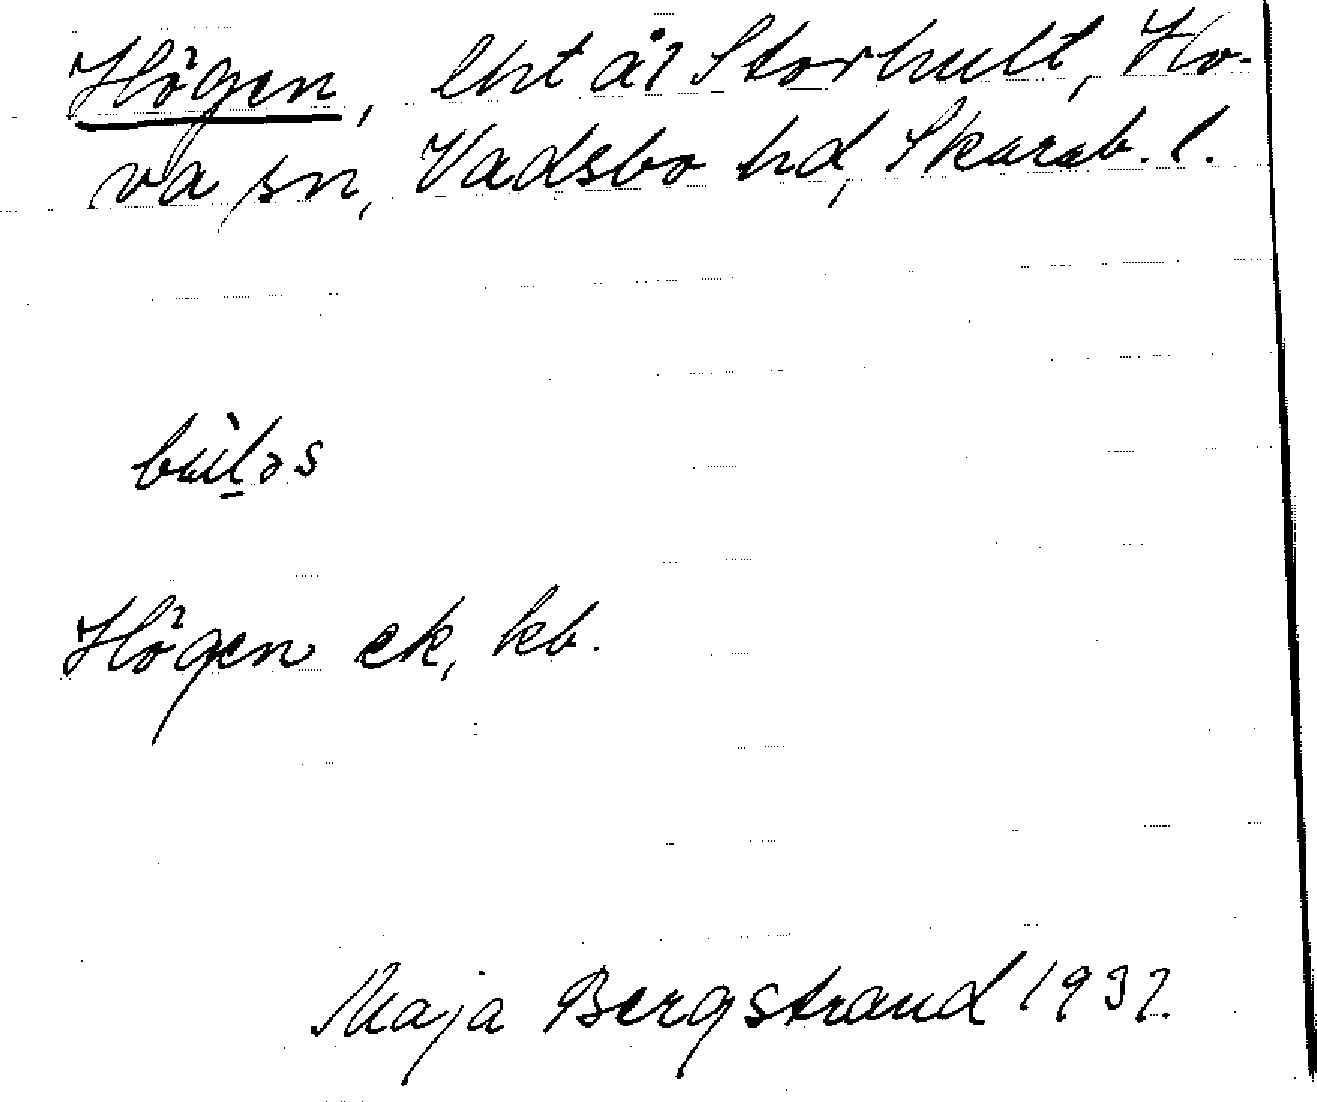 Högen, lht å1 Storhult, Ho-
va sn, Vadsbo hd, Skarab. l.
Högen ek, kb.
Maja Bergstrand 1932.